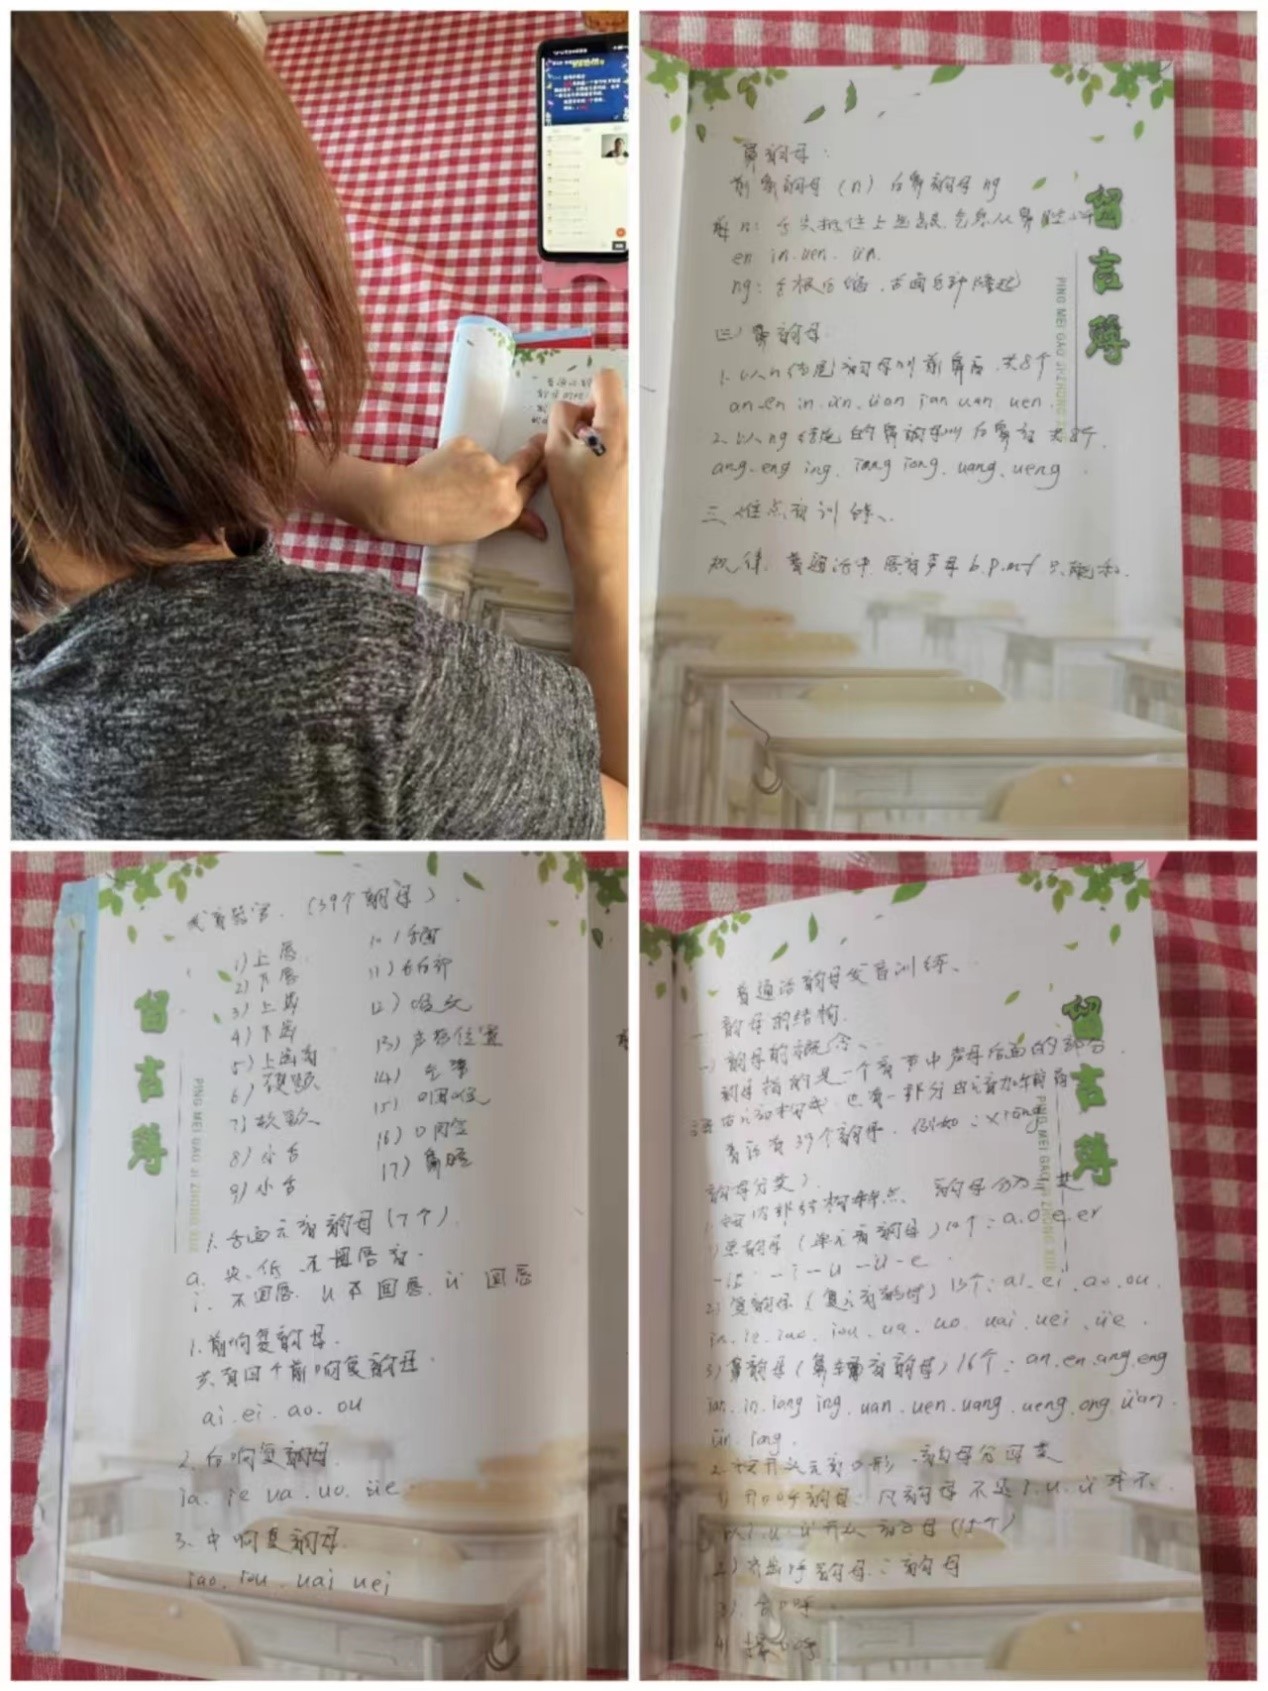 鼻韵母：
前鼻韵母（n）后鼻韵母 ng
n：舌尖抵住上齿龈，气流从鼻腔
en in.uen. ün.
ng：舌根后缩，舌面后部隆起
(三) 鼻韵母.
1. 以n结尾韵母叫前鼻音，共8个
an.en in.ün.üan ian uan uen.
2. 以ng结尾的鼻韵母叫后鼻音 共8个.
ang.eng ing, iang iong, uang, ueng
三 难点音训练、
规律：普通话中 唇音声母 b.p.m.f 只能和.
留言簿
PING MEI GAO JI ZHONG XUE
（39个韵母）.
1) 上唇
2) 下唇
3) 上齿
4) 下齿
5) 上齿龈
6) 硬颚、
7) 软颚、
8) 小舌
9) 小舌
10) 舌面
11) 舌后部
12) 喉头
13) 声带位置
14)
15) 咽喉
16) 口内空
17) 鼻腔
1. 舌面元音韵母（7个）.
a. 央、低、不圆唇音.
i. 不圆唇. u 不圆唇. ü 圆唇
1. 前响复韵母.
共有四个前响复韵母.
ai.ei.ao.ou
2. 后响复韵母.
ia. ie ua.uo. üe.
3. 中响复韵母.
iao. iou. uai uei
留言簿
PING MEI GAO JI ZHONG XUE
普通话韵母发音训练、
一 韵母的结构.
一) 韵母的概念、
韵母指的是一个音节中声母后面的部分.
也有一部分由元音加
普话有39个韵母. 例如：xiong
韵母分类).
1. 按内部结构特点、韵母分为三类
1) 单韵母（单元音韵母）10个：a.o.e.er
-i -i -u -ü -e.
2) 复韵母（复元音韵母）13个：ai. ei. ao. ou.
ia. ie. iao. iou. ua. uo. uai. uei. üe.
3) 鼻韵母（鼻辅音韵母）16个：an.en.ang.eng
ian. in. iang ing. uan. uen. uang. ueng. ong. üan.
ün. iong.
2. 按开头元音口形，韵母分四类
1) 开口呼韵母：凡韵母不是i.u.ü
i.u.ü开头 韵母（15个）
2) 齐齿呼韵母：韵母
3). 合口呼.
4) 撮口呼
留言簿
PING MEI GAO JI ZHONG XUE